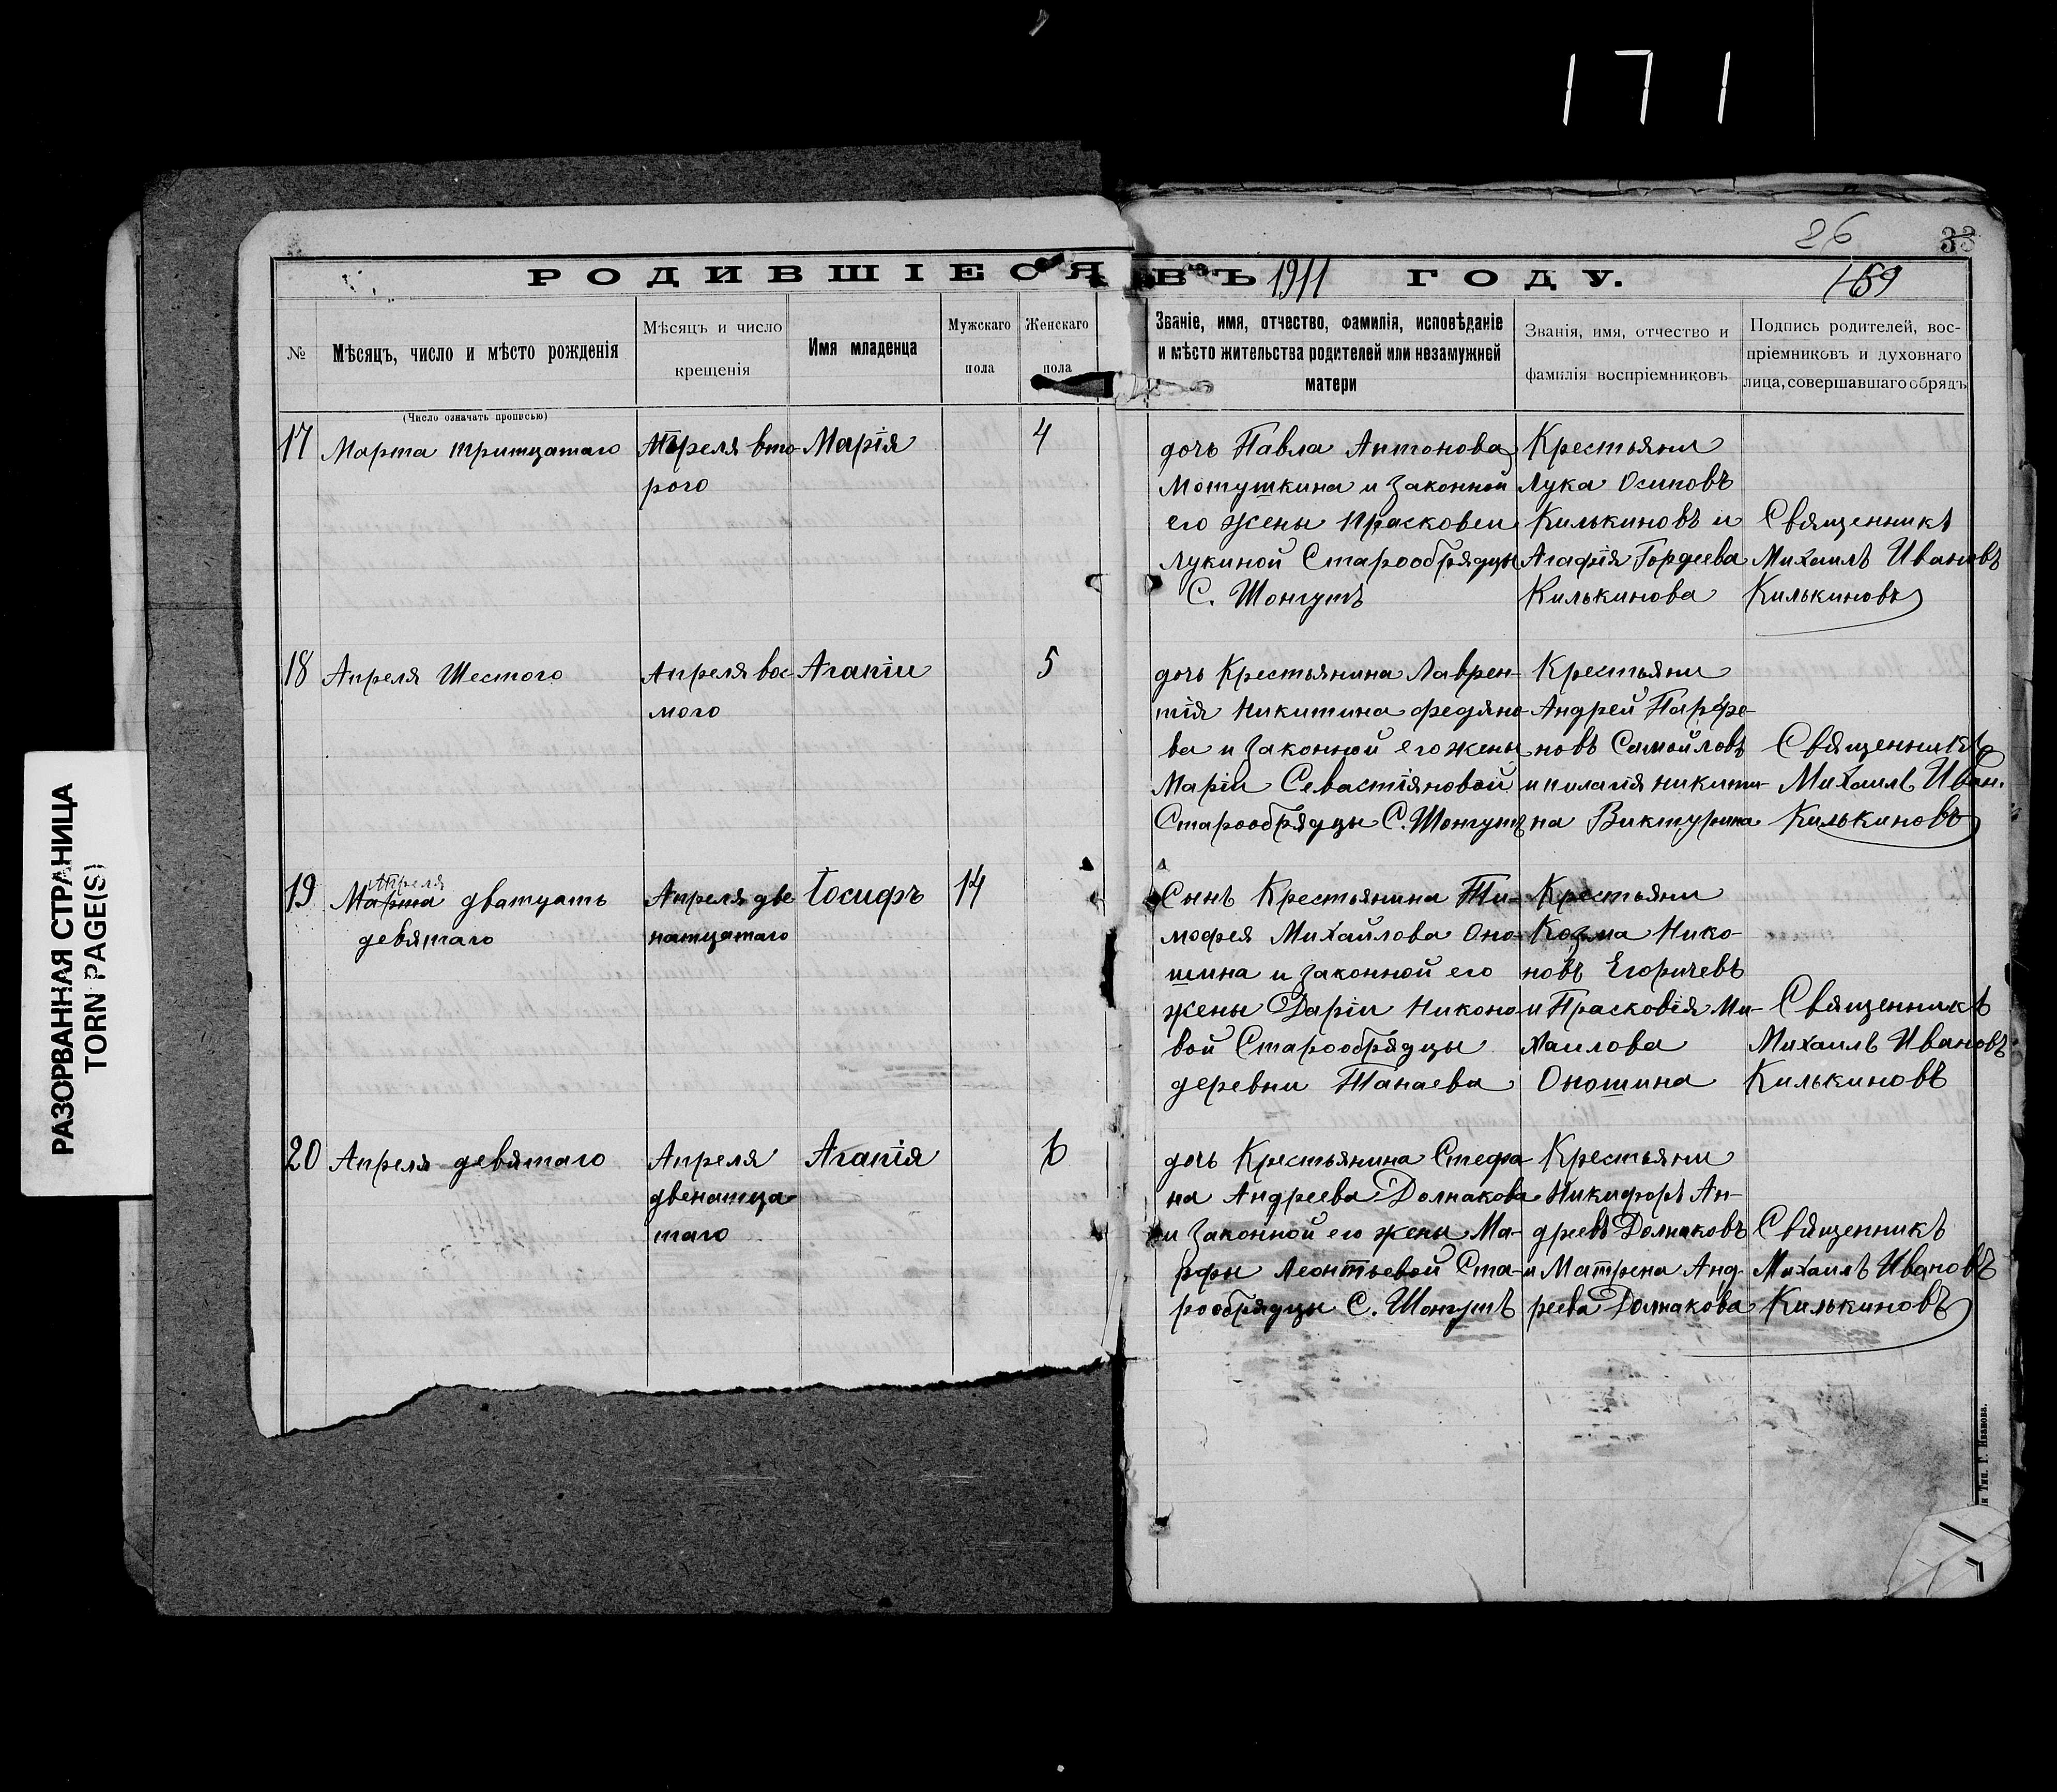 171
26
33
РОДИВШІЕСЯ ВЪ 1911 ГОДУ.
159
№
Мѣсяцъ, число и мѣсто рожденія
Мѣсяцъ и число
крещенія
Имя младенца
Мужскаго
пола
Женскаго
пола
Званіе, имя, отчество, фамилія, исповѣданіе
и мѣсто жительства родителей или незамужней
матери
Званія, имя, отчество и
фамилія воспріемниковъ
Подпись родителей, вос-
пріемниковъ и духовнаго
лица, совершавшаго обрядъ
(Число означать прописью)
17
Марта тритцатаго
Апреля вто-
рого
Марія
4
дочь Павла Антонова
Мотушкина и законной
его жены Прасковеи
Лукиной Старообрядцы
С. Шонгутъ
Крестьяни
Лука Осиповъ
Килькиновъ и
Агафія Гордеева
Килькинова
Священникъ
Михаилъ Ивановъ
Килькиновъ
18
Апреля Шестого
Апреля вос-
мого
Агапіи
5
дочь Крестьянина Лаврен-
тія Никитина Федяно-
ва и законной его жены
Маріи Севастіяновой
Старообрядцы С. Шонгутъ
Крестьяни
Андрей Парфе-
новъ Самойловъ
и Никити-
на
Священникъ
Михаилъ Иван.
Килькиновъ
19
Апреля
Марта дватцать
девятаго
Апреля две
натцатаго
Іосифъ
14
Сынъ Крестьянина Ти-
мофея Михайлова Оно-
шина и законной его
жены Даріи Никоно-
вой Старообрядцы
деревни Танаева
Крестьяни
Козма Нико-
новъ Егоричевъ
и Прасковія Ми-
хаилова
Оношина
Священникъ
Михаилъ Ивановъ
Килькиновъ
20
Апреля девятаго
Апреля
двенатца
таго
Агапія
6
дочь Крестьянина Стефа-
на Андреева Долмакова
и законной его жены Ма-
рфы Леонтьевой Ста-
рообрядцы С. Шонгутъ
Крестьяни
Никифоръ Ан-
дреевъ Долмаковъ
и Матрена Анд-
реева Долмакова
Священникъ
Михаилъ Ивановъ
Килькиновъ
Тип. Г. Иванова.
РАЗОРВАННАЯ СТРАНИЦА
TORN PAGE(S)